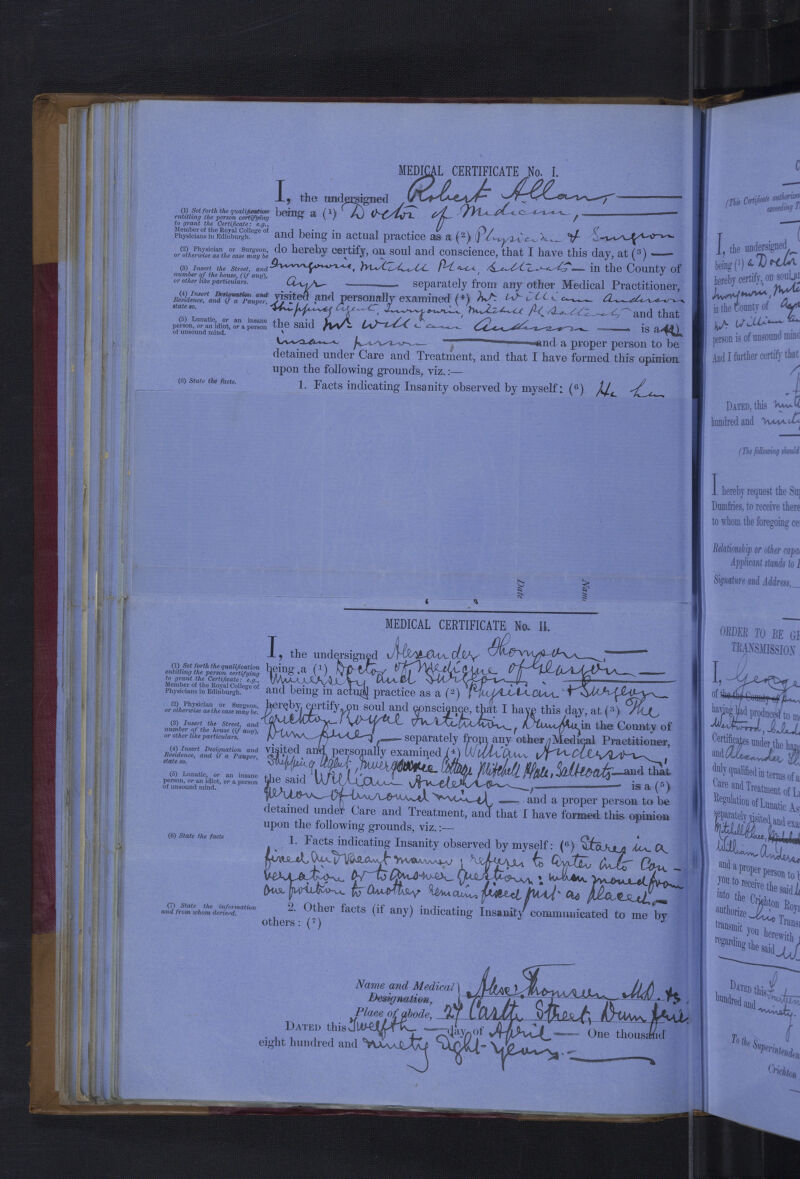 MEDICAL CERTIFICATE No. I.
I, the undersigned Robert Allan,
(1) Set forth the qualification entitling the person certifying to grant the Certificate; e.g., Member of the Royal College of Physicians in Edinburgh.
being a (1) Doctor of Medicine,
and being in actual practice as a (2) Physician & Surgeon
(2) Physician or Surgeon, or otherwise as the case may be
do hereby certify, on soul and conscience, that I have this day, at (3)
(3) Insert the Street, and number of the house, (if any), or other like particulars.
Innergowrie, Mitchell Place, Saltcoats in the County of
Ayr separately from any other Medical Practitioner,
(4) Insert Designation and Residence, and if a Pauper, state so.
visited and personally examined (4) Mr. William Anderson
Shipping Agent, Innergowrie Mitchell Pl Saltcoats and that
(5) Lunatic, or an insane person, or an idiot, or a person of unsound mind.
the said Mr. William Anderson is a (5)
insane person and a proper person to be
detained under Care and Treatment, and that I have formed this opinion
upon the following grounds, viz.:—
(6) State the facts.
1. Facts indicating Insanity observed by myself: (6) He has
Date
Nam
MEDICAL CERTIFICATE No. II.
I, the undersigned Alexander Thomson,
(1) Set forth the qualification entitling the person certifying to grant the Certificate; e.g., Member of the Royal College of Physicians in Edinburgh.
being a (1) Doctor of Medicine of Glasgow
University and Surgeon
and being in actual practice as a (2) Physician & Surgeon
(2) Physician or Surgeon, or otherwise as the case may be.
hereby certify, on soul and conscience, that I have this day, at (3) The
(3) Insert the Street, and number of the house (if any), or other like particulars.
Crichton Royal Institution, Dumfries in the County of
Dumfries, separately from any other Medical Practitioner,
(4) Insert Designation and Residence, and if a Pauper, state so.
visited and personally examined (4) William Anderson,
Shipping Agent, Innergowrie Cottage Mitchell Place, Saltcoats and that
(5) Lunatic, or an insane person, or an idiot, or a person of unsound mind.
the said William Anderson, is a (5)
person of unsound mind and a proper person to be
detained under Care and Treatment, and that I have formed this opinion
upon the following grounds, viz.:—
(6) State the facts
1. Facts indicating Insanity observed by myself: (6) Stares in a
fixed and vacant manner; refuses to enter into Con-
versation or to answer Questions; when moved from
one position to another remains fixed just as placed.
(7) State the information and from whom derived.
2. Other facts (if any) indicating Insanity communicated to me by
others: (7)
Name and Medical Designation, Alexr. Thomson M.D. &c
Place of abode, 27 Castle Street, Dumfries
DATED this Twelfth day of April One thousand
eight hundred and ninety eight years.
(This Certificate
exceeding
I, the undersigned
being (1) a Doctor
hereby certify, on soul
in the County of
Mr. William
person is of unsound mind
And I further certify that
DATED, this
hundred and
(The following should
I hereby request the
Dumfries, to receive
to whom the foregoing
Relationship or other
Applicant stands to
Signature and Address,
ORDER TO BE
TRANSMISSION
I, George
of the County of
having had produced to
Certificates under the
and Alexander
duly qualified in terms of
Care and Treatment of
Regulation of Lunatic
separately visited and
Mitchell Place,
William
and a proper person to
you to receive the said
into the Crichton
authorize
transmit you herewith
regarding the said
DATED this
hundred and ninety
To the
Crichton